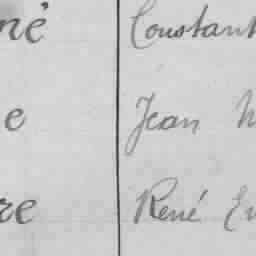 né Constant
e Jean
re René